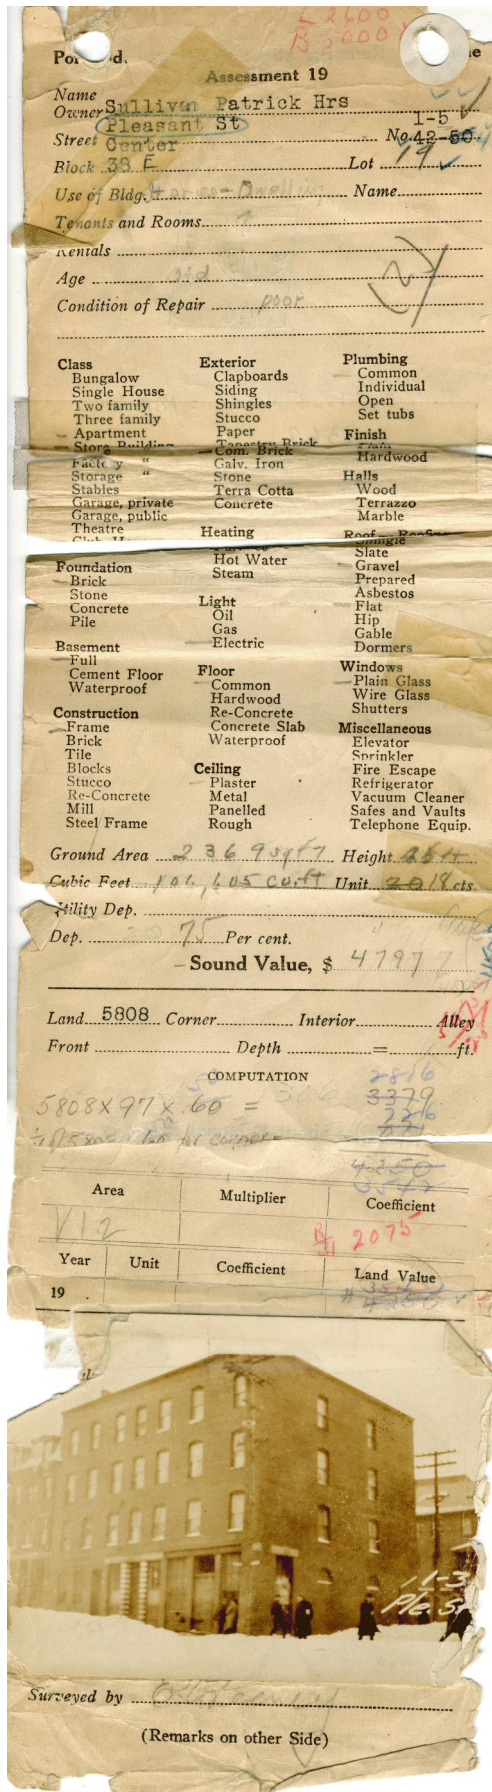 L 2600
B 5000
Assessment 19
Name
Owner Sullivan Patrick Hrs
Pleasant St 1-5
Street Center No. 42-50
Block 38 E Lot 19
Use of Bldg. Stores-Dwelling Name
Tenants and Rooms
Rentals
Age old
Condition of Repair poor
Class
Bungalow
Single House
Two family
Three family
Apartment
Store Building
Factory "
Storage "
Stables
Garage, private
Garage, public
Theatre
Foundation
Brick
Stone
Concrete
Pile
Basement
Full
Cement Floor
Waterproof
Construction
Frame
Brick
Tile
Blocks
Stucco
Re-Concrete
Mill
Steel Frame
Exterior
Clapboards
Siding
Shingles
Stucco
Paper
Tapestry Brick
Com. Brick
Galv. Iron
Stone
Terra Cotta
Concrete
Heating
Furnace
Hot Water
Steam
Light
Oil
Gas
Electric
Floor
Common
Hardwood
Re-Concrete
Concrete Slab
Waterproof
Ceiling
Plaster
Metal
Panelled
Rough
Plumbing
Common
Individual
Open
Set tubs
Finish
Hardwood
Halls
Wood
Terrazzo
Marble
Roof—Roofing
Shingle
Slate
Gravel
Prepared
Asbestos
Flat
Hip
Gable
Dormers
Windows
Plain Glass
Wire Glass
Shutters
Miscellaneous
Elevator
Sprinkler
Fire Escape
Refrigerator
Vacuum Cleaner
Safes and Vaults
Telephone Equip.
Ground Area 2369 sq ft Height 45 ft
Cubic Feet 106,605 cu.ft Unit 20 18 cts
Utility Dep.
Dep. 75 Per cent.
Sound Value, $ 4797
Land 5808 Corner Interior Alley
Front Depth = ft.
COMPUTATION
2816
5808 X 97 X .60 = 3379
726
4250
3542
Area Multiplier Coefficient
V12
B 2075
Year Unit Coefficient Land Value
19
11-3
Pleas
Surveyed by
(Remarks on other Side)